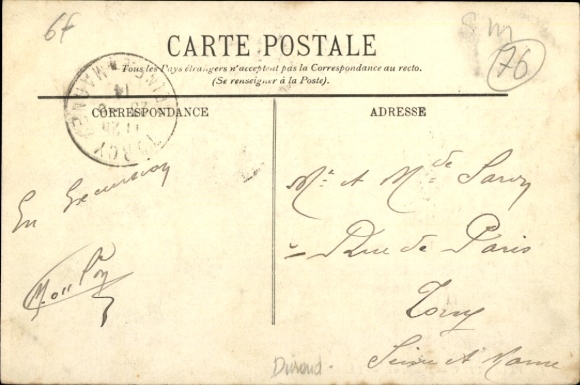 6f
S m
76
CARTE POSTALE
Tous les Pays étrangers n'acceptent pas la Correspondance au recto.
(Se renseigner à la Poste).
CORRESPONDANCE
ADRESSE
TORCY
SEINE-ET-MARNE
En Excursion
Mr et Mde
Rue de Paris
Torcy
Seine et Marne
Durand.